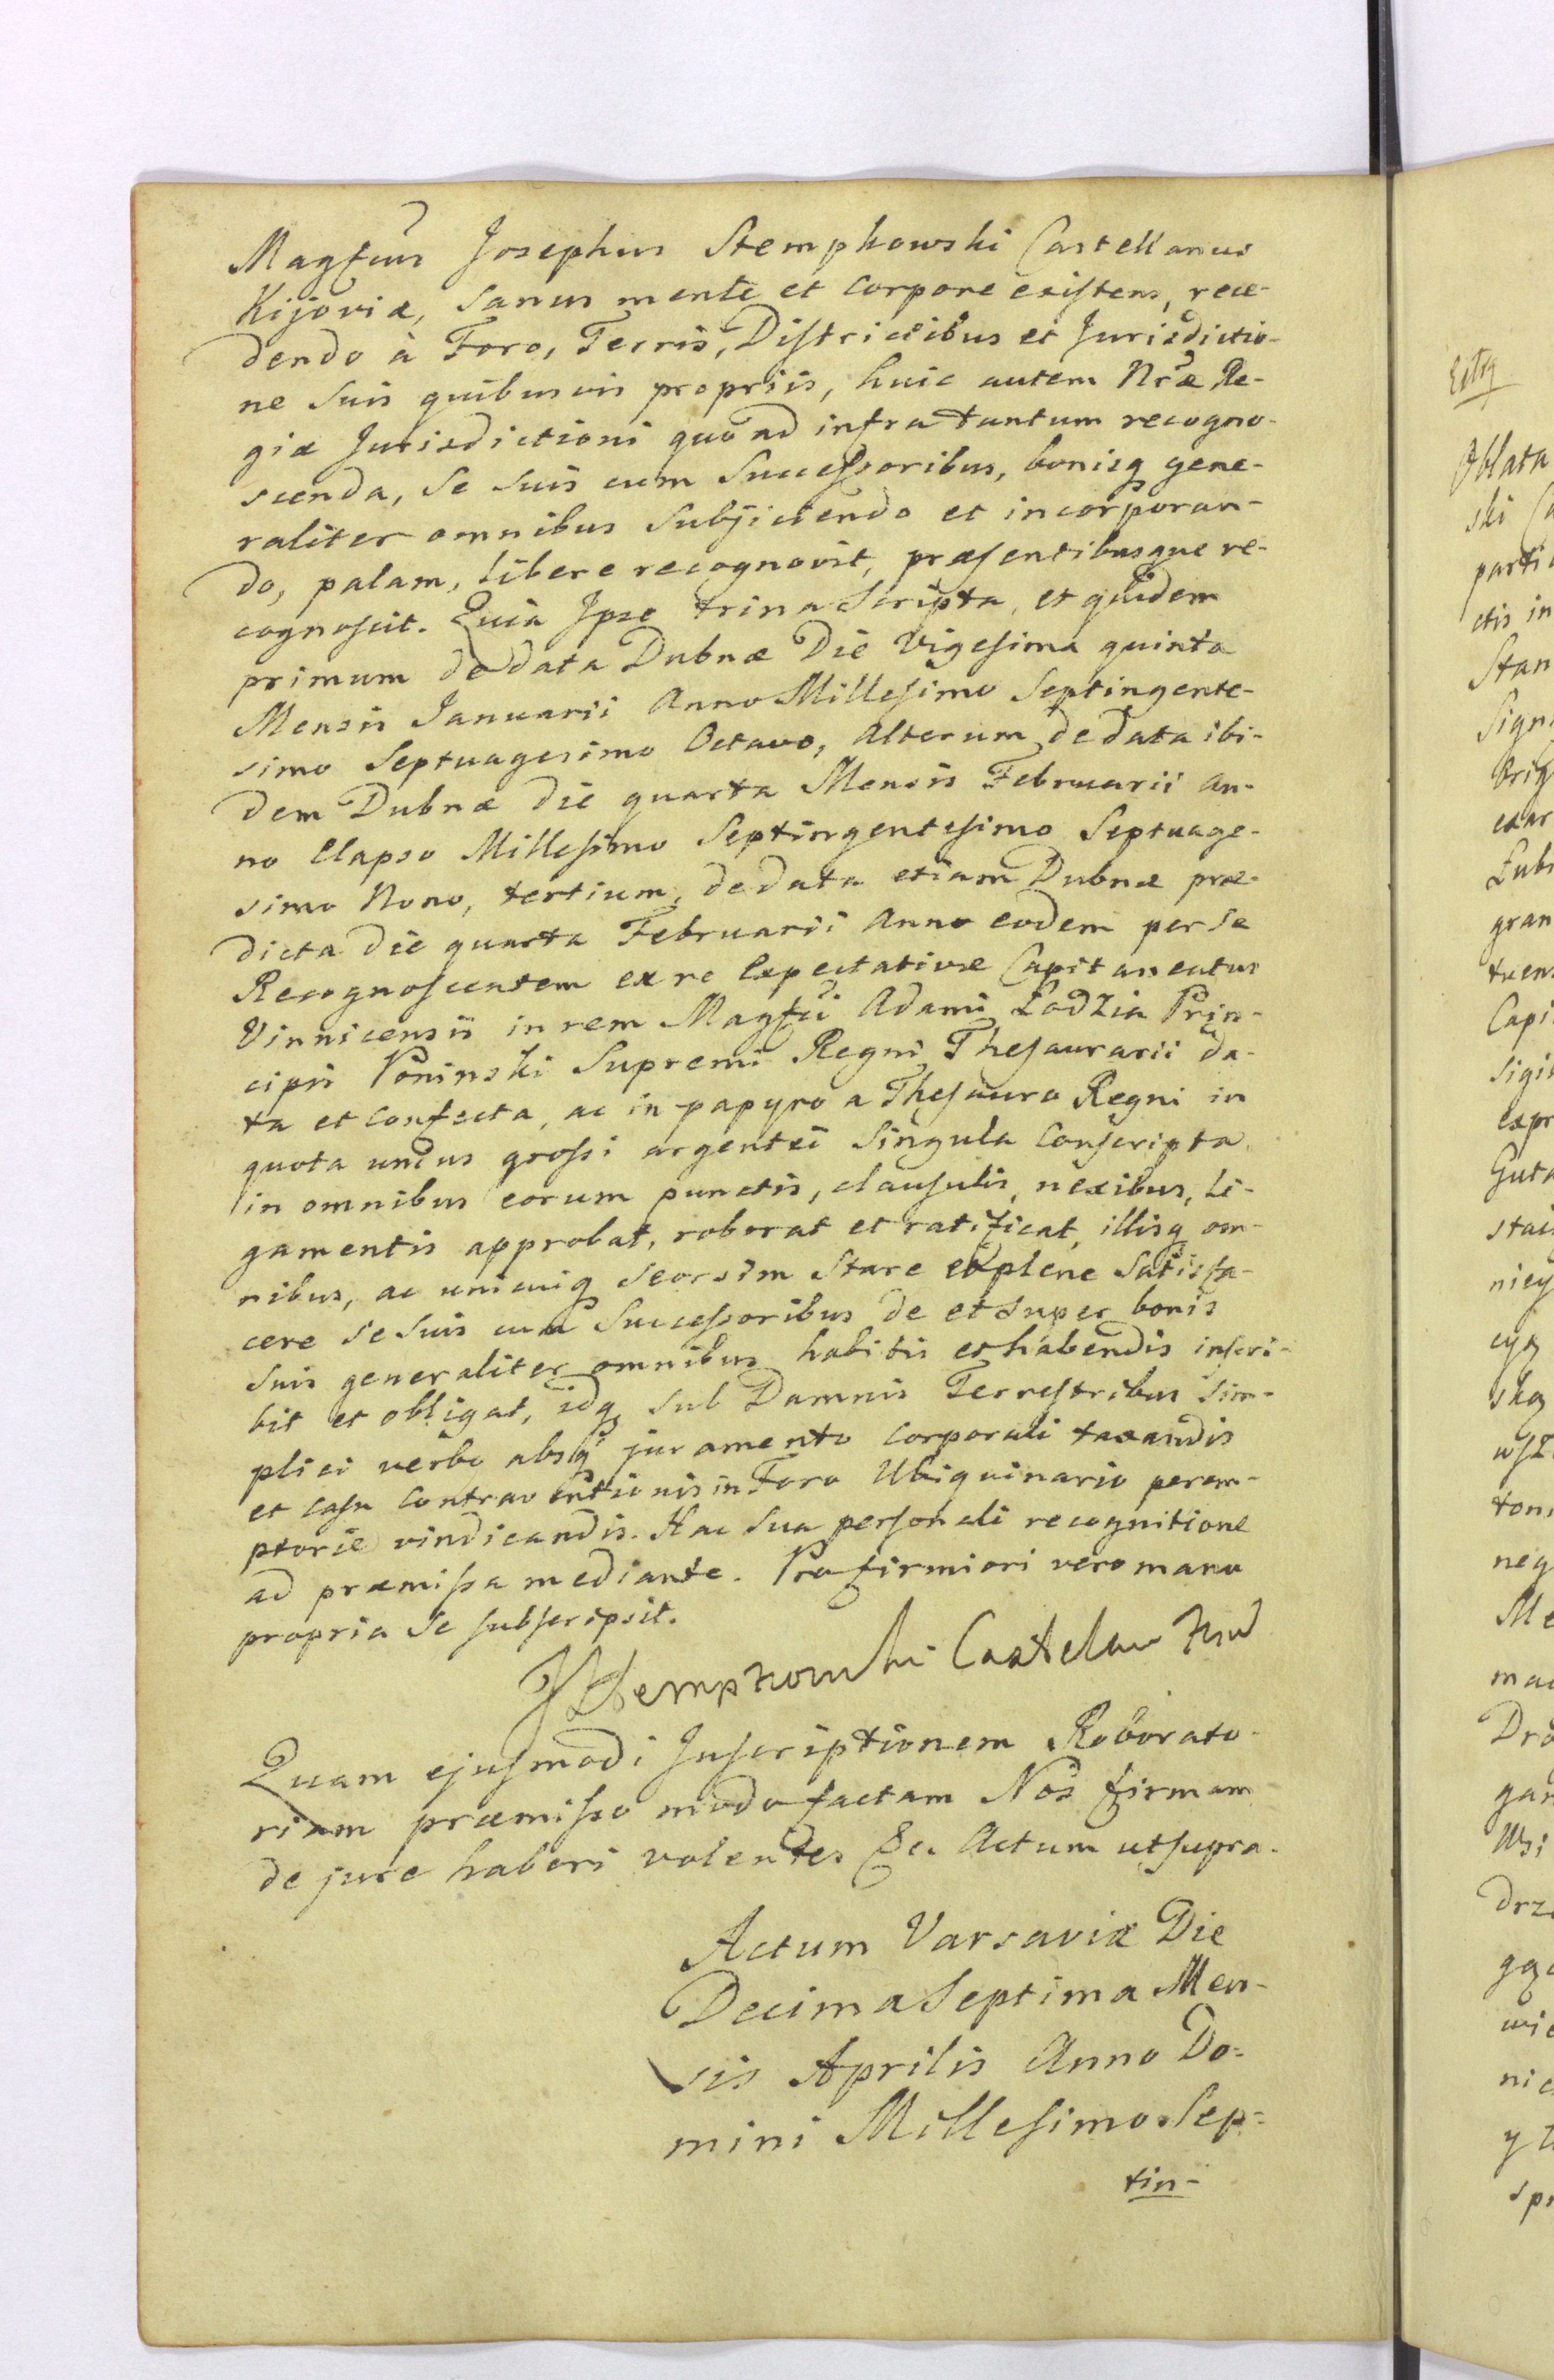 Magfcus Josephus Stempkowski Castellanus
Kijoviæ, sanus mente et corpore existens, rece-
dendo à Foro, Terris, Districtibus et Jurisdictio-
ne suis quibusvis propriis, huic autem Nræ Re-
giæ Jurisdictioni quo ad infra tantum recogno-
scenda, se suis cum Successoribus, bonisq gene-
raliter omnibus subjiciendo et incorporan-
do, palam, libere recognovit, præsentibusque re-
cognoscit. Quia Ipse trina Scripta, et quidem
primum de data Dubnæ Die Vigesima quinta
Mensis Januarii Anno Millesimo Septingente-
simo Septuagesimo Octavo, Alterum de data ibi-
dem Dubnæ die quarta Mensis Februarii an-
no Elapso Millesimo Septingentesimo Septuage-
simo Nono, tertium, de data etiam Dubnæ præ-
dicta die quarta Februarii Anno eodem per se
Recognoscentem ex re Expectativæ Capitaneatus
Vinnicensis in rem Magfci Adami Łodzia Prin-
cipis Poninski Supremi Regni Thesaurarii da-
ta et confecta, ac in papyro a Thesauro Regni in
quota unius grossi argentei singula conscripta
in omnibus eorum punctis, clausulis, nexibus, li-
gamentis approbat, roborat et ratificat, illisq om-
nibus, ac unicuiq seorsim stare explene satisfa-
cere se suis cum Successoribus de et super bonis
suis generaliter omnibus habitis et habendis inscri-
bit et obligat, idq sub Damnis Terrestribus sim-
plici verbo absq juramento corporali taxandis
et casu contraventionis in Foro Ubiquinario perem-
ptorie vindicandis. Hac sua personali recognitione
ad præmissa mediante. Pro firmiori vero manu
propria se subscripsit.
JStempkowski Castelan
Quam ejusmodi Inscriptionem Roborato-
riam præmisso modo factam Nos firmam
de jure haberi volentes &c. Actum ut supra.
Actum Varsaviæ Die
Decima Septima Men-
sis Aprilis Anno Do-
mini Millesimo Sep-
tin-
Oblata
ski
parti
ctis in
Stan
Sign
gran
Capi
sigi
expr
neg
Me
Dro
gan
Wsi
drze